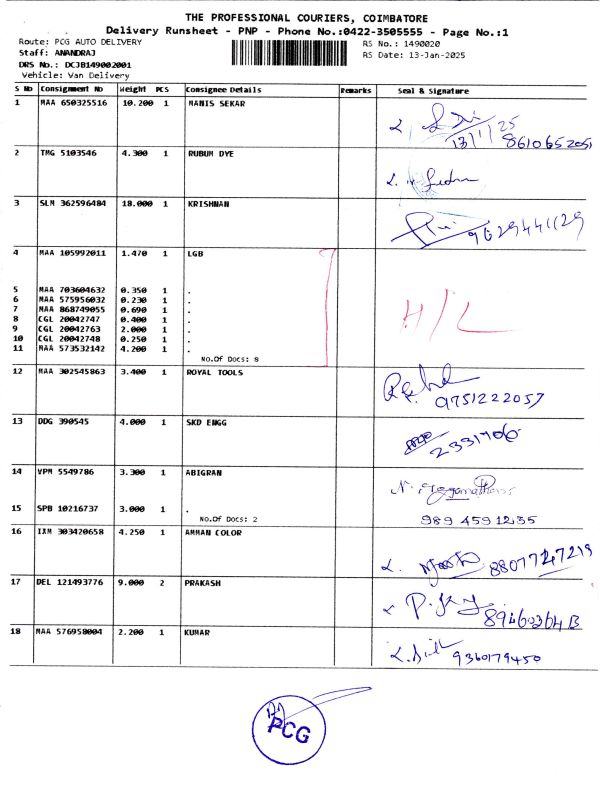 THE PROFESSIONAL COURIERS, COIMBATORE
Delivery Runsheet - PNP - Phone No.:0422-3505555 - Page No.:1
Route: PCG AUTO DELIVERY
RS No.: 1490020
Staff: ANANDRAJ
RS Date: 13-Jan-2025
DRS No.: DCJB149002001
Vehicle: Van Delivery
S No Consignment No Weight PCS Consignee Details Remarks Seal & Signature
1 MAA 650325516 10.200 1 MANIS SEKAR
13/1/25 8610652051
2 TMG 5103546 4.300 1 RUBUM DYE
3 SLM 362596484 18.000 1 KRISHNAN
9629441129
4 MAA 105992011 1.470 1 LGB
5 MAA 703604632 0.350 1 .
6 MAA 575956032 0.230 1 .
7 MAA 868749055 0.690 1 .
8 CGL 20042747 0.400 1 .
9 CGL 20042763 2.000 1 .
10 CGL 20042748 0.250 1 .
11 MAA 573532142 4.200 1 .
No.Of Docs: 8
H/L
12 MAA 302545863 3.400 1 ROYAL TOOLS
9751222057
13 DDG 390545 4.000 1 SKD ENGG
2331706
14 VPM 5549786 3.300 1 ABIGRAN
15 SPB 10216737 3.000 1 .
No.Of Docs: 2
989 459 1235
16 IXM 303420658 4.250 1 AMMAN COLOR
8807747219
17 DEL 121493776 9.000 2 PRAKASH
18 MAA 576958004 2.200 1 KUMAR
9360179450
PCG